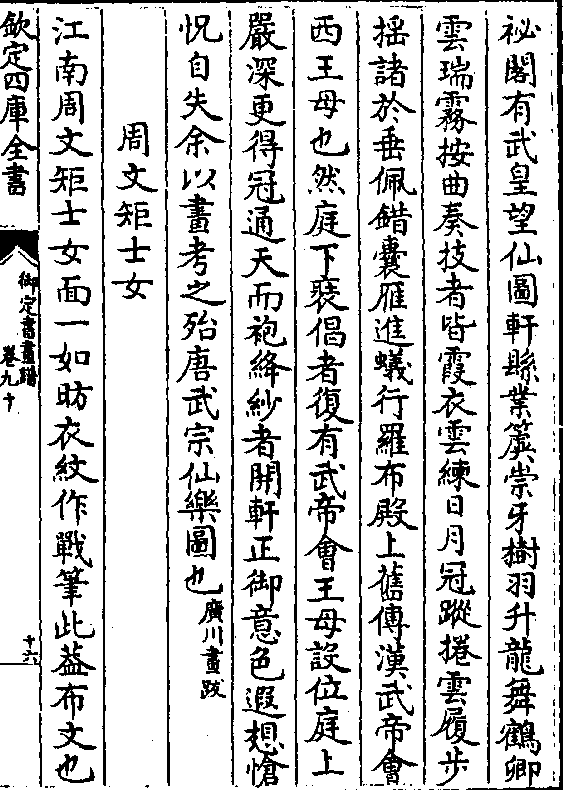 祕閣有武皇望仙圖軒縣業簴崇牙樹羽升龍舞鶴卿
雲瑞霧按曲奏技者皆霞衣雲練日月冠蹤捲雲履步
揺諸於垂佩錯囊雁進蟻行羅布殿上舊傳漢武帝會
西王母也然庭下褻倡者復有武帝會王母設位庭上
嚴深更得冠通天而袍絳紗者開軒正御意色遐想愴
怳自失余以畫考之殆唐武宗仙樂圖也廣川畫跋
周文矩士女
江南周文矩士女面一如昉衣紋作戰筆此葢布文也
欽定四庫全書
御定書畫譜
卷九十
十六